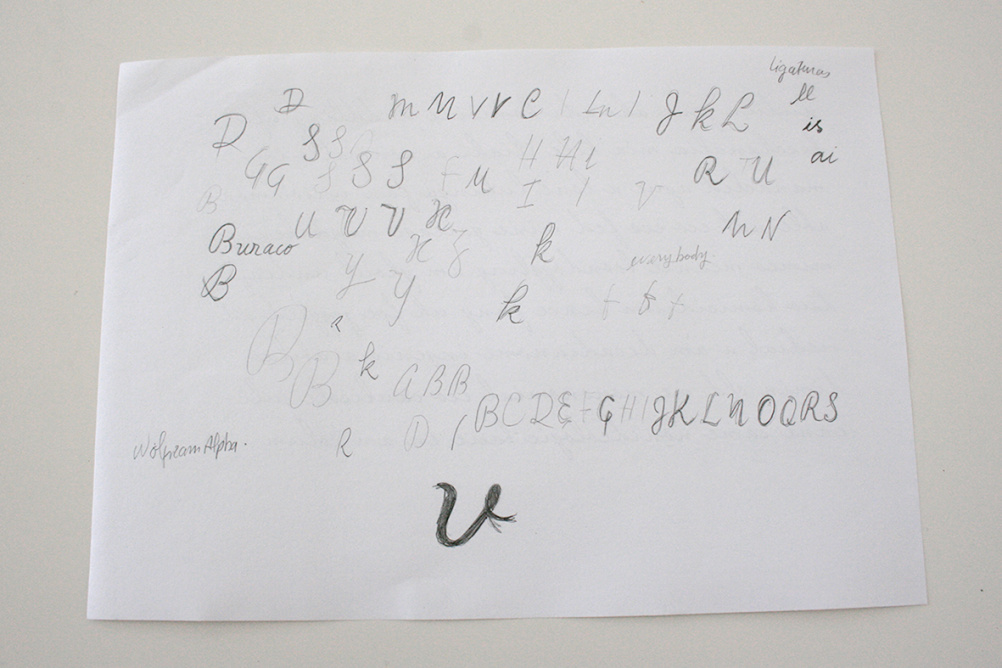 ligaturas
D m M V V C I Ln I J k L ll
D S S is
G G S S S F M H H I R U ai
B I I V
U V V H M N
Buraco H Z k everybody
B Y Y k t t t
B R
B k A B B
B C D E F G H I J K L N O Q R S
Wolfram Alpha. R D I
V